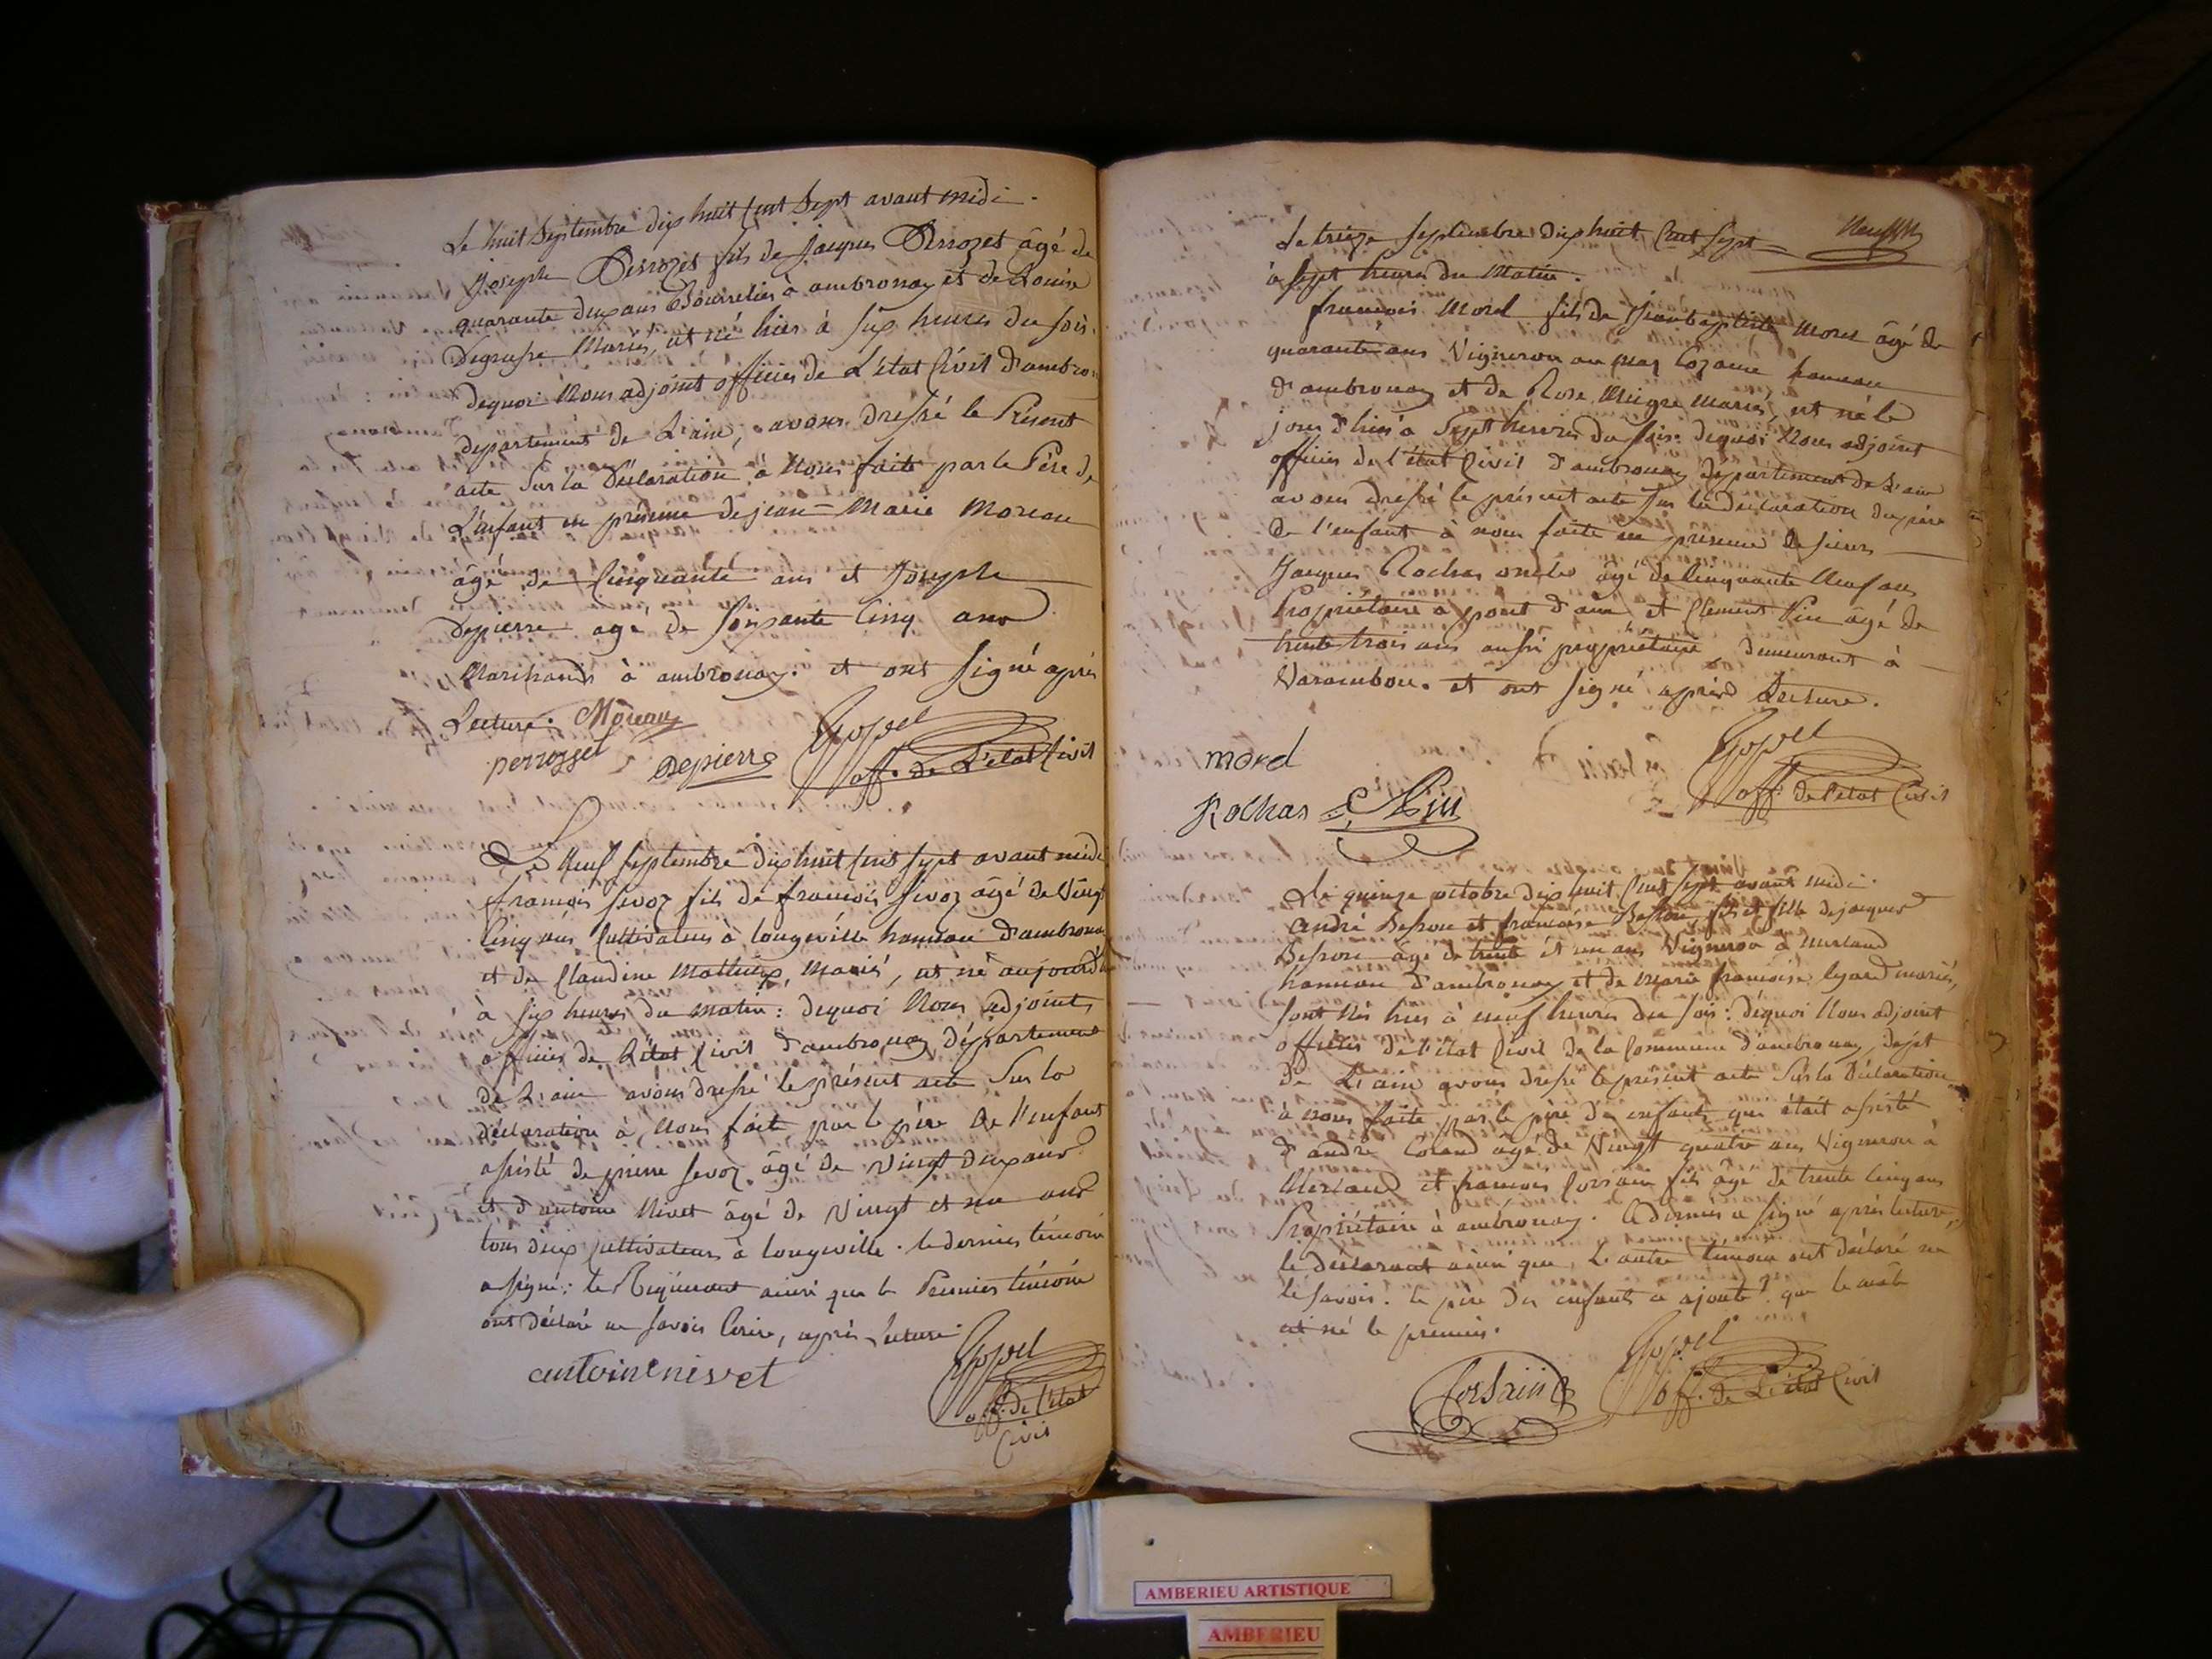 Le huit Septembre dix huit Cent Sept avant midi.
Joseph Perrozet fils de Jacques Perrozet âgé de
quarante deux ans Bourrelier à ambronay et de Louise
Degrusse Mariés, est né hier à six heures du soir.
dequoi Nous adjoint officier de L'état Civil d'ambron
departement de L'ain, avons dressé le Présent
acte Sur la Déclaration à Nous faite par le Père de
L'enfant en présence de jean-Marie Moreau
âgé de Cinquante ans et Joseph
Depierre age de soixante Cinq ans
Marchands à ambronay. et ont signé après
Lecture. Moreau
perrozset Depierre off. de L'état Civil
Le Neuf septembre dix huit Cent sept avant midi
françois sevoz fils de françois sevoz âgé de Vingt
Cinq ans Cultivateur à longeville hameau d'ambronay
et de Claudine Mariés, est né aujourd'hui
à six heures du matin: dequoi Nous adjoint
officier de L'état Civil d'ambronay Département
de L'ain avons dressé le présent acte Sur la
déclaration à Nous fait par le père de l'enfant
assisté de pierre sevoz âgé de Vingt deux ans
et d'antoine Nivet âgé de Vingt et un ans
tous deux Cultivateurs à longeville. le dernier témoin
a signé: le Requérant ainsi que le Premier témoin
ont déclaré ne savoir Ecrire, après Lecture.
antoine nivet
off. de l'état
Civil
Le treize septembre dix huit Cent sept
à sept heures du Matin.
françois Morel fils de Jean baptiste Morel âgé de
quarante ans Vigneron au hameau
d'ambronay et de Rose Mariés, est né le
jour d'hier à Sept heures du soir: dequoi Nous adjoint
officier de l'état Civil d'ambronay département de L'ain
avons dressé le présent acte sur la déclaration du père
de l'enfant à nous faite en présence de sieurs
Jacques Rochas âgé de Cinquante Neuf ans
Propriétaire à pont d'ain et Clement Pin âgé de
trente trois ans aussi propriétaire, demeurant à
Varambon. et ont signé après Lecture.
morel
off. de l'état Civil
Rochas C. Pin
Le quinze octobre dix huit Cent sept avant midi.
andré Besson et françoise Besson, fils et fille de jacques
Besson âgé de trente et un ans Vigneron à Merland
hameau d'ambronay et de marie françoise mariés,
sont Nés hier à neuf heures du soir: dequoi Nous adjoint
officier de l'état Civil de la Commune d'ambronay, dépt
de L'ain avons dressé le présent acte Sur la Déclaration
à nous faite par le père des enfants qui était assisté
d'andré âgé de Vingt quatre ans Vigneron à
Merland et françois Corsain fils âgé de trente Cinq ans
Propriétaire à ambronay. Ce dernier a signé après lecture,
le déclarant ainsi que L'autre témoin ont déclaré ne
le savoir. le père des enfants a ajouté que le mâle
est né le premier.
Corsain off. de L'état Civil
AMBERIEU ARTISTIQUE
AMBERIEU